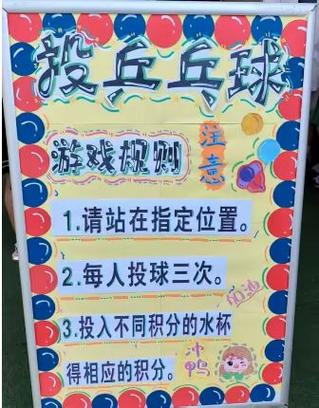 投乒乓球
注意
游戏规则
1.请站在指定位置。
2.每人投球三次。
加油
3.投入不同积分的水杯
得相应的积分。
冲鸭